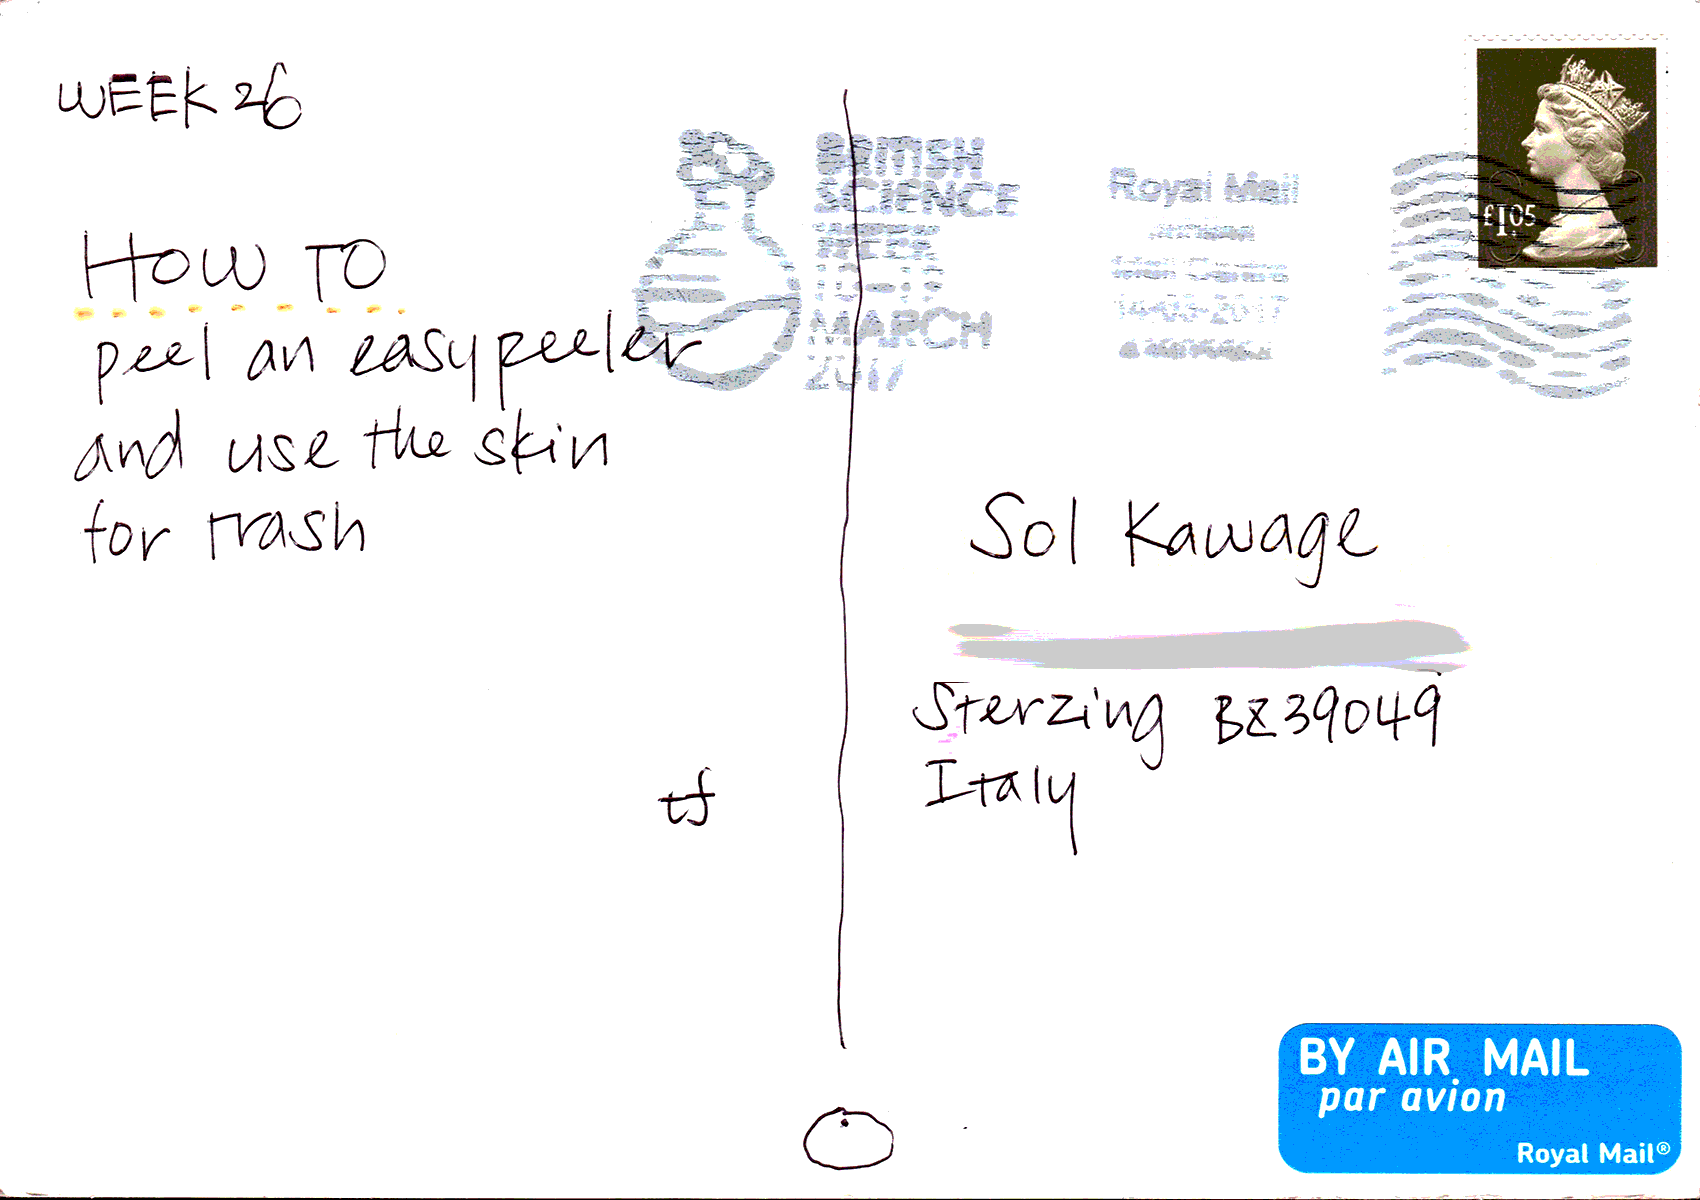 WEEK 26
HOW TO
peel an easypeeler
and use the skin
for trash
tf
BRITISH
SCIENCE
WEEK
MARCH
2017
Royal Mail
14-03-2017
£1.05
Sol Kawage
Sterzing BZ39049
Italy
BY AIR MAIL
par avion
Royal Mail®